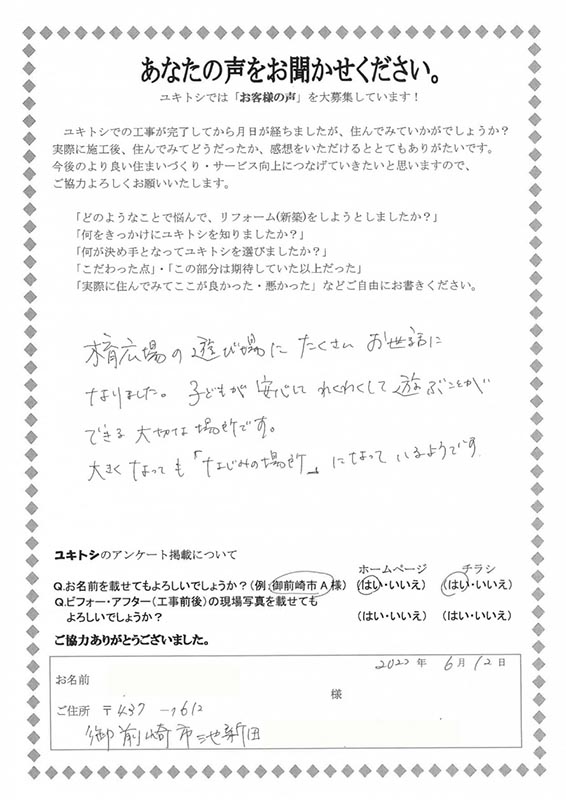 あなたの声をお聞かせください。
ユキトシでは「お客様の声」を大募集しています！
ユキトシでの工事が完了してから月日が経ちましたが、住んでみていかがでしょうか？
実際に施工後、住んでみてどうだったか、感想をいただけるととてもありがたいです。
今後のより良い住まいづくり・サービス向上につなげていきたいと思いますので、
ご協力よろしくお願いいたします。
「どのようなことで悩んで、リフォーム(新築)をしようとしましたか？」
「何をきっかけにユキトシを知りましたか？」
「何が決め手となってユキトシを選びましたか？」
「こだわった点」・「この部分は期待していた以上だった」
「実際に住んでみてここが良かった・悪かった」などご自由にお書きください。
木育広場の遊び場にたくさんお世話に
なりました。子どもが安心してわくわくして遊ぶことが
できる大切な場所です。
大きくなっても「なじみの場所」になっているようです
ユキトシのアンケート掲載について
ホームページ チラシ
Q.お名前を載せてもよろしいでしょうか？(例:御前崎市A様) (はい・いいえ) (はい・いいえ)
Q.ビフォー・アフター(工事前後)の現場写真を載せても
よろしいでしょうか？ (はい・いいえ) (はい・いいえ)
ご協力ありがとうございました。
2022年 6月12日
お名前
様
ご住所 〒437-1612
御前崎市池新田